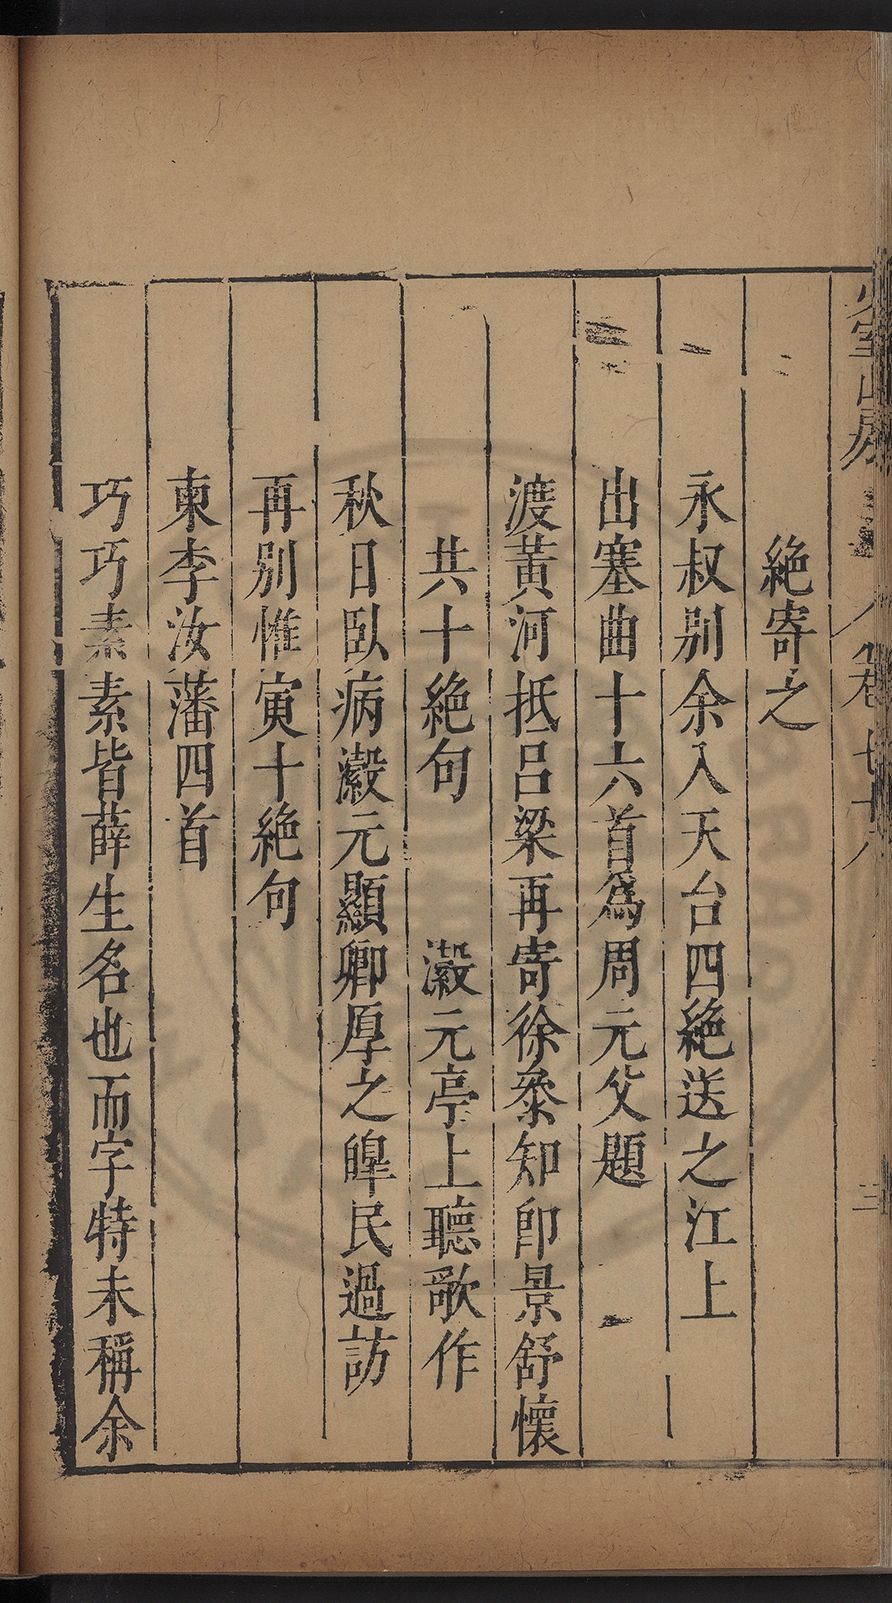 少室山房 卷七十八 三
絕寄之
永叔別余入天台四絕送之江上
出塞曲十六首爲周元父題
渡黃河抵呂梁再寄徐叅知即景舒懷
共十絕句　瀫元亭上聽歌作
秋日臥病瀫元顯卿厚之皥民過訪
再別惟寅十絕句
柬李汝藩四首
巧巧素素皆薛生名也而字特未稱余